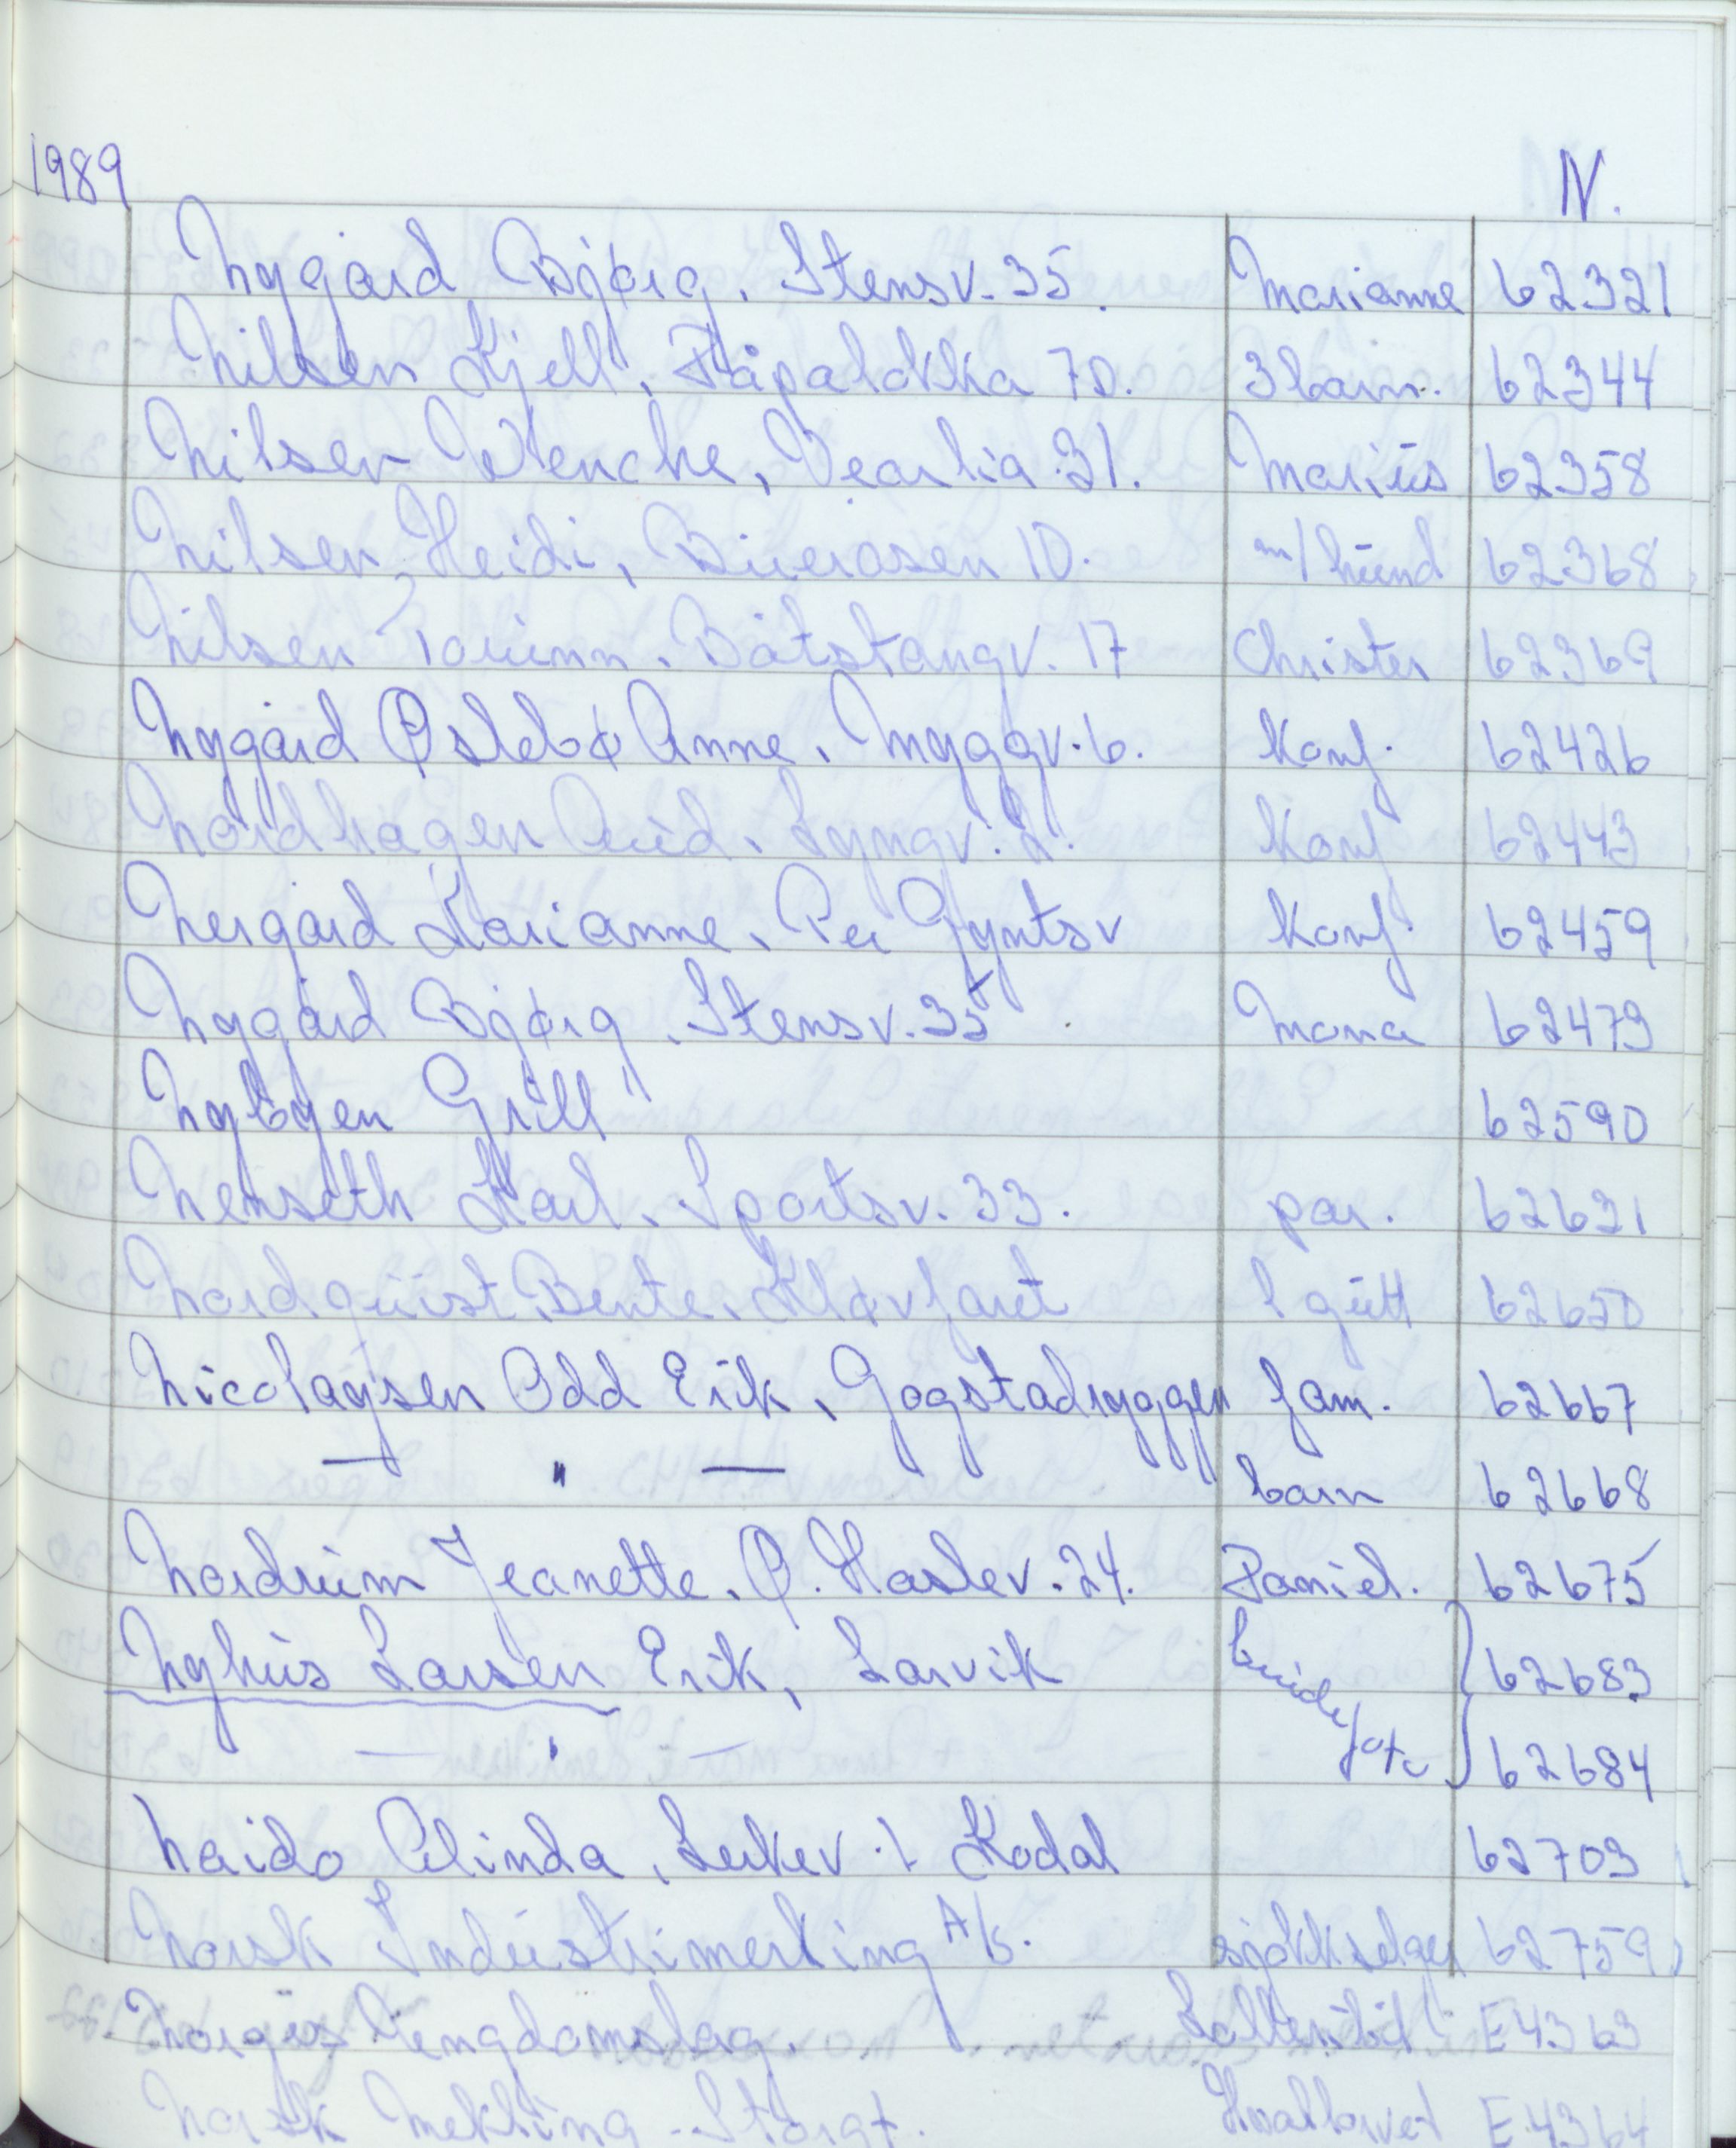 1989 N.
Nygård Bjørg, Stensv. 35. Marianne 62321
Nilsen Kjell, Råpaløkka 70. 3 barn. 62344
Nilsen Wenche, Vearlia 31. Marius 62358
Nilsen Heidi, Bueråsen 10. m/hund 62368
Nilsen Torunn, Båtstangv. 17 Christer 62369
Nygård Oslebø Anne, Myggv. 6. Konf. 62426
Nordhagen Arvid, Lyngv. 2. Konf 62443
Nergård Karianne, Per Gyntsv Konf. 62459
Nygård Bjørg, Stensv. 35 Mona 62479
Nybyen Grill 62590
Nenseth Karl, Sportsv. 33. par. 62631
Nordquist Bente, Kløvfaret 1 gutt 62650
Nicolaysen Odd Erik, Gogstadryggen fam. 62667
— " — barn 62668
Nordrum Jeanette, O. Haslev. 24. Daniel. 62675
Nyhus Larsen Erik, Larvik brude 62683
— " — foto 62684
Naido Alinda, Lerkev. 1 Kodal 62703
Norsk Industrimerking A/S. sjokkselger 62759
Norges Ungdomslag. E4363
Norsk Mekling Storgt. Hvaltorvet E4364